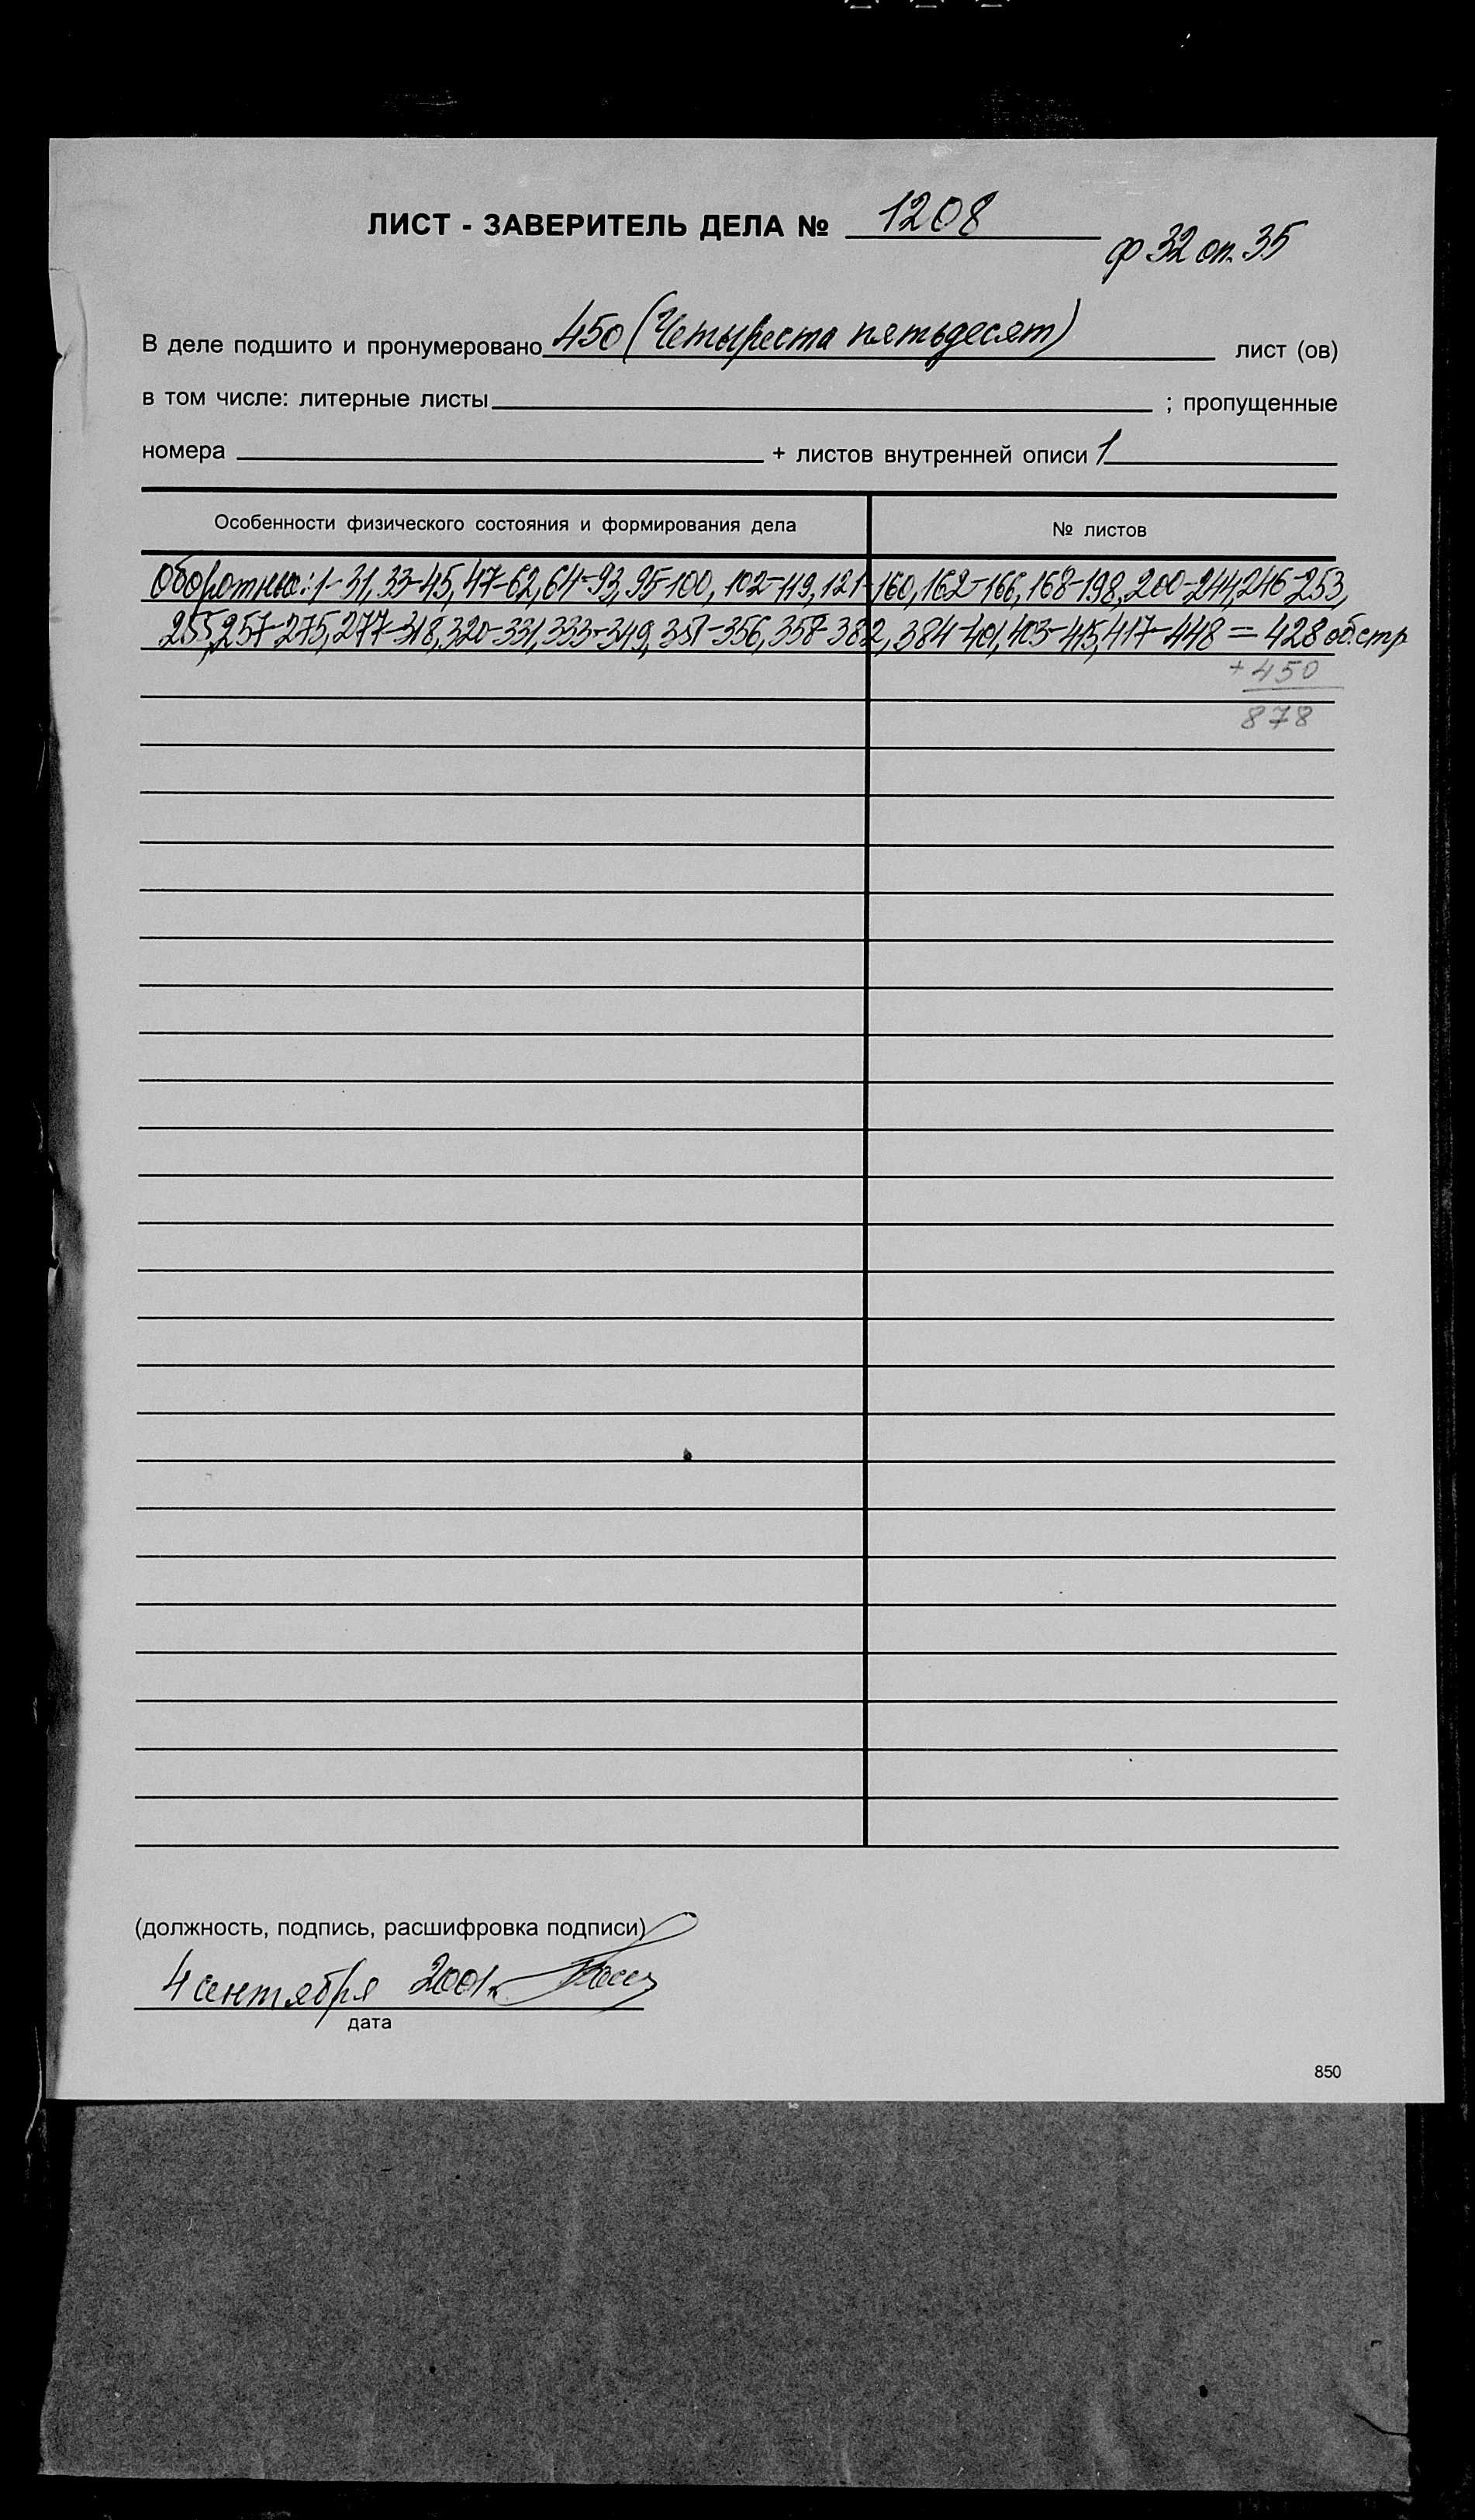 ЛИСТ - ЗАВЕРИТЕЛЬ ДЕЛА № 1208
ф 32 оп. 35
В деле подшито и пронумеровано 450 (Четыреста пятьдесят) лист (ов)
в том числе: литерные листы ; пропущенные
номера + листов внутренней описи 1
Особенности физического состояния и формирования дела № листов
Оборотные: 1-31, 33-45, 47-62, 64-93, 95-100, 102-119, 121-160, 162-166, 168-198, 200-244, 246-253,
255, 257-275, 277-318, 320-331, 333-349, 351-356, 358-382, 384-401, 403-415, 417-448 = 428 об.стр
+ 450
878
(должность, подпись, расшифровка подписи)
4 сентября 2001г.
дата
850